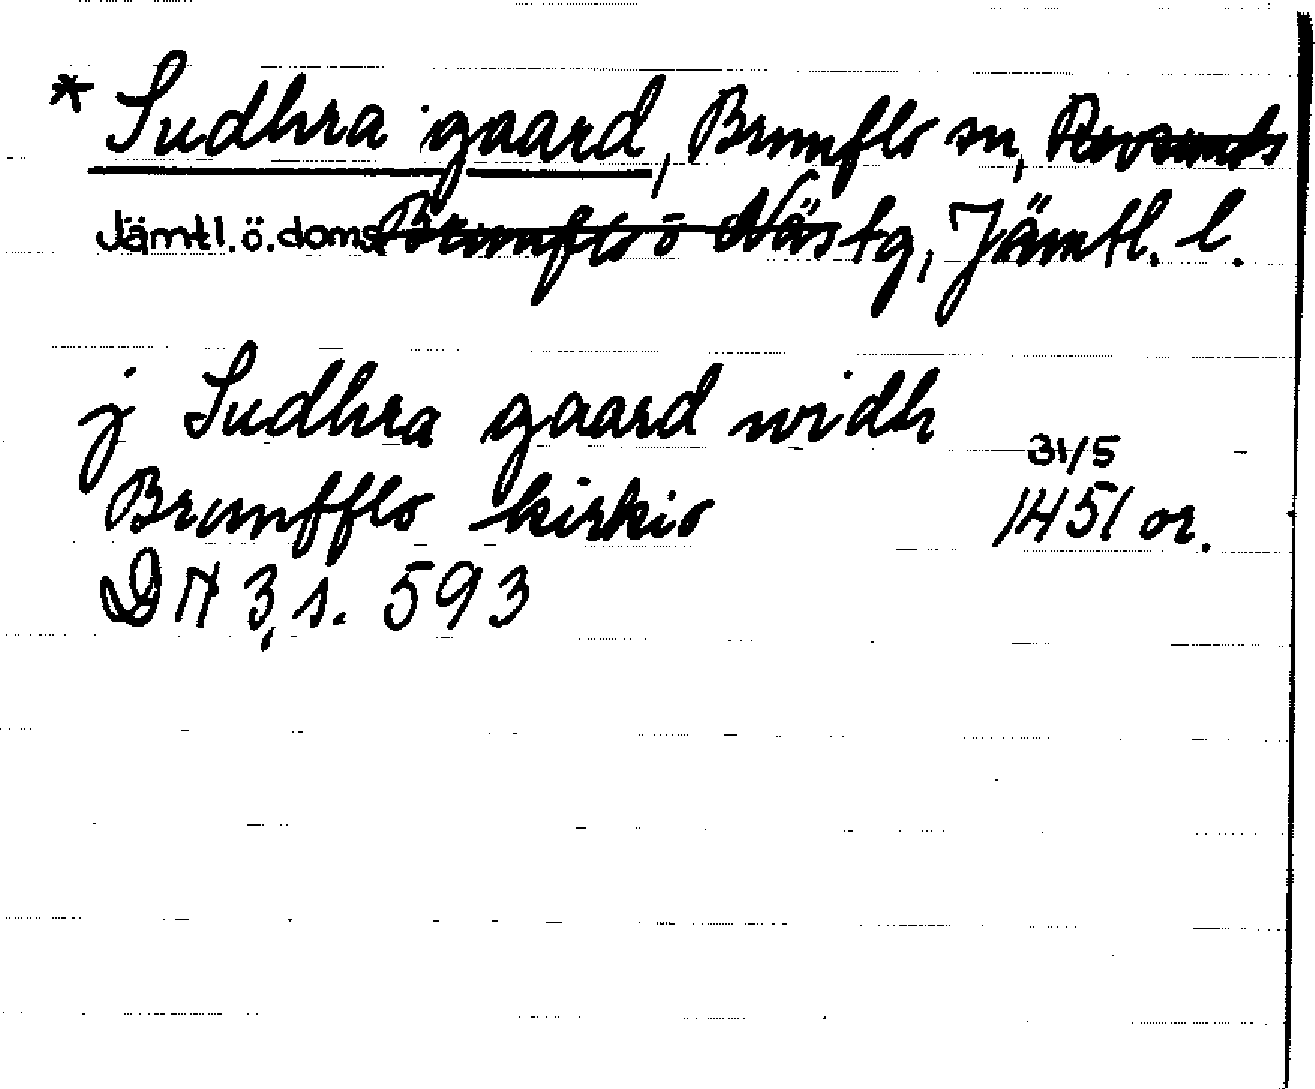 * Sudhra gaard, Brunflo sn, Revsunds
Jämtl. ö. doms Brunflo o Näs tg, Jämtl. l.
j Sudhra gaard widh
31/5
Brunfflo kirkio 1451 or.
DN 3, s. 593